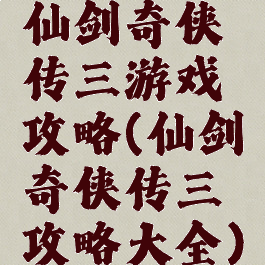 仙剑奇侠
传三游戏
攻略(仙剑
奇侠传三
攻略大全)